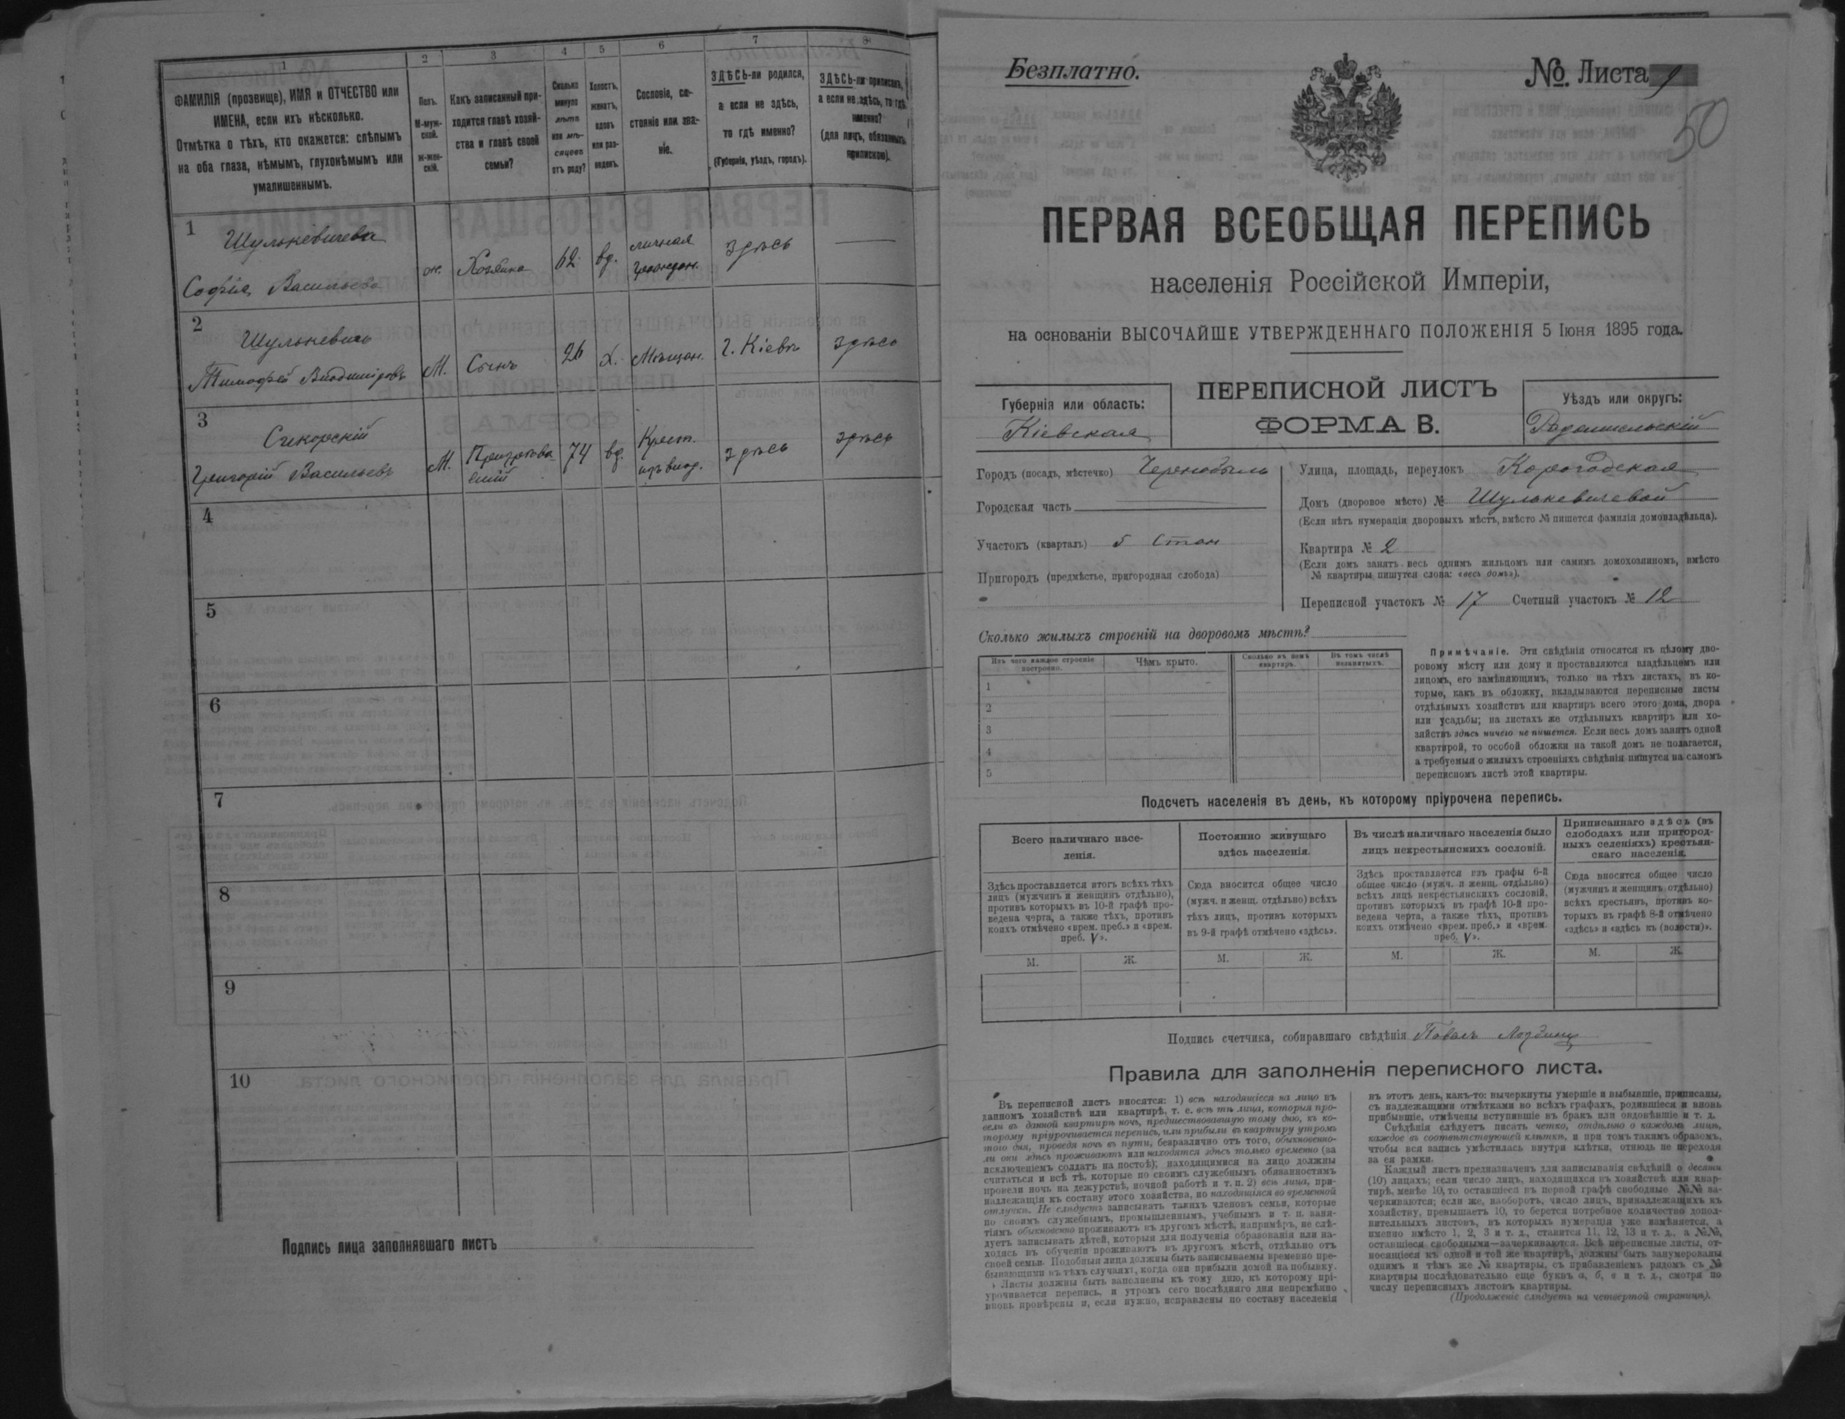 1
2
3
4
5
6
7
8
ФАМИЛІЯ (прозвище), ИМЯ и ОТЧЕСТВО или
ИМЕНА, если ихъ нѣсколько.
Отмѣтка о тѣхъ, кто окажется: слѣпымъ
на оба глаза, нѣмымъ, глухонѣмымъ или
умалишеннымъ.
Полъ.
М-муж-
ской.
Ж-жен-
скій.
Какъ записанный при-
ходится главѣ хозяй-
ства и главѣ своей
семьи?
Сколько
минуло
лѣтъ
или мѣ-
сяцевъ
отъ роду?
Холостъ,
женатъ,
вдовъ
или раз-
веденъ.
Сословіе, со-
стояніе или зва-
ніе.
ЗДѢСЬ-ли родился,
а если не здѣсь,
то гдѣ именно?
(Губернія, уѣздъ, городъ).
ЗДѢСЬ-ли приписанъ,
а если не здѣсь, то гдѣ
именно?
(для лицъ, обязанныхъ
припискою).
1
Шулькевичева
Софія Васильева
ж.
Хозяйка
62
вд.
личная
граждан.
здѣсь
2
Шулькевичъ
Тимофей Владиміровъ
М.
Сынъ
26
х.
Мѣщан.
г. Кіевъ
здѣсь
3
Сикорскій
Григорій Васильевъ
М.
74
вд.
Крест.
здѣсь
здѣсь
4
5
6
7
8
9
10
Подпись лица заполнявшаго листъ
Безплатно.
№ Листа 9
50
ПЕРВАЯ ВСЕОБЩАЯ ПЕРЕПИСЬ
населенія Россійской Имперіи,
на основаніи ВЫСОЧАЙШЕ УТВЕРЖДЕННАГО ПОЛОЖЕНІЯ 5 Іюня 1895 года.
Губернія или область:
Кіевская
ПЕРЕПИСНОЙ ЛИСТЪ
ФОРМА В.
Уѣздъ или округъ:
Радомысльскій
Городъ (посадъ, мѣстечко) Чернобыль
Городская часть
Участокъ (кварталъ) 5 Стан
Пригородъ (предмѣстье, пригородная слобода)
Улица, площадь, переулокъ Корогодская
Домъ (дворовое мѣсто) № Шулькевичевой
(Если нѣтъ нумераціи дворовыхъ мѣстъ, вмѣсто № пишется фамилія домовладѣльца).
Квартира № 2
(Если домъ занятъ весь однимъ жильцомъ или самимъ домохозяиномъ, вмѣсто
№ квартиры пишутся слова: «весь домъ»).
Переписной участокъ № 17 Счетный участокъ № 12
Сколько жилыхъ строеній на дворовомъ мѣстѣ?
Изъ чего каждое строеніе
построено.
Чѣмъ крыто.
Сколько въ немъ
квартиръ.
Въ томъ числѣ
незанятыхъ.
1
2
3
4
5
Примѣчаніе. Эти свѣдѣнія относятся къ цѣлому дво-
ровому мѣсту или дому и проставляются владѣльцемъ или
лицомъ, его замѣняющимъ, только на тѣхъ листахъ, въ ко-
торые, какъ въ обложку, вкладываются переписные листы
отдѣльныхъ хозяйствъ или квартиръ всего этого дома, двора
или усадьбы; на листахъ же отдѣльныхъ квартиръ или хо-
зяйствъ здѣсь ничего не пишется. Если весь домъ занятъ одной
квартирой, то особой обложки на такой домъ не полагается,
а требуемыя о жилыхъ строеніяхъ свѣдѣнія пишутся на самомъ
переписномъ листѣ этой квартиры.
Подсчетъ населенія въ день, къ которому пріурочена перепись.
Всего наличнаго насе-
ленія.
Здѣсь проставляется итогъ всѣхъ тѣхъ
лицъ (мужчинъ и женщинъ отдѣльно),
противъ которыхъ въ 10-й графѣ про-
ведена черта, а также тѣхъ, противъ
коихъ отмѣчено «врем. преб.» и «врем.
преб. V».
М.
Ж.
Постоянно живущаго
здѣсь населенія.
Сюда вносится общее число
(мужч. и женщ. отдѣльно) всѣхъ
тѣхъ лицъ, противъ которыхъ
въ 9-й графѣ отмѣчено «здѣсь».
М.
Ж.
Въ числѣ наличнаго населенія было
лицъ некрестьянскихъ сословій.
Здѣсь проставляется изъ графы 6-й
общее число (мужч. и женщ. отдѣльно)
всѣхъ лицъ некрестьянскихъ сословій,
противъ которыхъ въ графѣ 10-й про-
ведена черта, а также тѣхъ, противъ
коихъ отмѣчено «врем. преб.» и «врем.
преб. V».
М.
Ж.
Приписаннаго здѣсь (въ
слободахъ или пригород-
ныхъ селеніяхъ) крестьян-
скаго населенія.
Сюда вносится общее число
(мужчинъ и женщинъ отдѣльно)
всѣхъ крестьянъ, противъ ко-
торыхъ въ графѣ 8-й отмѣчено
«здѣсь» и «здѣсь къ (волости)».
М.
Ж.
Подпись счетчика, собиравшаго свѣдѣнія
Правила для заполненія переписного листа.
Въ переписной листъ вносятся: 1) всѣ находящіеся на лицо въ
данномъ хозяйствѣ или квартирѣ, т. е. всѣ тѣ лица, которыя про-
вели въ данной квартирѣ ночь, предшествовавшую тому дню, къ ко-
торому пріурочивается перепись, или прибыли въ квартиру утромъ
того дня, проведя ночь въ пути, безразлично отъ того, обыкновенно-
ли они здѣсь проживаютъ или находятся здѣсь только временно (за
исключеніемъ солдатъ на постоѣ); находящимися на лицо должны
считаться и всѣ тѣ, которые по своимъ служебнымъ обязанностямъ
провели ночь на дежурствѣ, ночной работѣ и т. п. 2) всѣ лица, при-
надлежащія къ составу этого хозяйства, но находящіяся во временной
отлучкѣ. Не слѣдуетъ записывать такихъ членовъ семьи, которые
по своимъ служебнымъ, промышленнымъ, учебнымъ и т. п. заня-
тіямъ обыкновенно проживаютъ въ другомъ мѣстѣ, напримѣръ, не слѣ-
дуетъ записывать дѣтей, которыя для полученія образованія или на-
ходясь въ обученіи проживаютъ въ другомъ мѣстѣ, отдѣльно отъ
своей семьи. Подобныя лица должны быть записываемы временно пре-
бывающими въ тѣхъ случаяхъ, когда они прибыли домой на побывку.
Листы должны быть заполнены къ тому дню, къ которому прі-
урочивается перепись, и утромъ сего послѣдняго дня непремѣнно
вновь провѣрены и, если нужно, исправлены по составу населенія
въ этотъ день, какъ-то: вычеркнуты умершіе и выбывшіе, приписаны,
съ надлежащими отмѣтками во всѣхъ графахъ, родившіеся и вновь
прибывшіе, отмѣчены вступившіе въ бракъ или овдовѣвшіе и т. д.
Свѣдѣнія слѣдуетъ писать четко, отдѣльно о каждомъ лицѣ,
каждое въ соотвѣтствующей клѣткѣ, и при томъ такимъ образомъ,
чтобы вся запись умѣстилась внутри клѣтки, отнюдь не переходя
за ея рамки.
Каждый листъ предназначенъ для записыванія свѣдѣній о десяти
(10) лицахъ; если число лицъ, находящихся въ хозяйствѣ или квар-
тирѣ, менѣе 10, то оставшіеся въ первой графѣ свободные №№ за-
черкиваются; если же, наоборотъ, число лицъ, принадлежащихъ къ
хозяйству, превышаетъ 10, то берется потребное количество допол-
нительныхъ листовъ, въ которыхъ нумерація уже измѣняется, а
именно вмѣсто 1, 2, 3 и т. д., ставится 11, 12, 13 и т. д., а №№,
оставшіеся свободными—зачеркиваются. Всѣ переписные листы, от-
носящіеся къ одной и той же квартирѣ, должны быть занумерованы
однимъ и тѣмъ же № квартиры, съ прибавленіемъ рядомъ съ №
квартиры послѣдовательно еще буквъ а, б, в и т. д., смотря по
числу переписныхъ листовъ квартиры.
(Продолженіе слѣдуетъ на четвертой страницѣ).